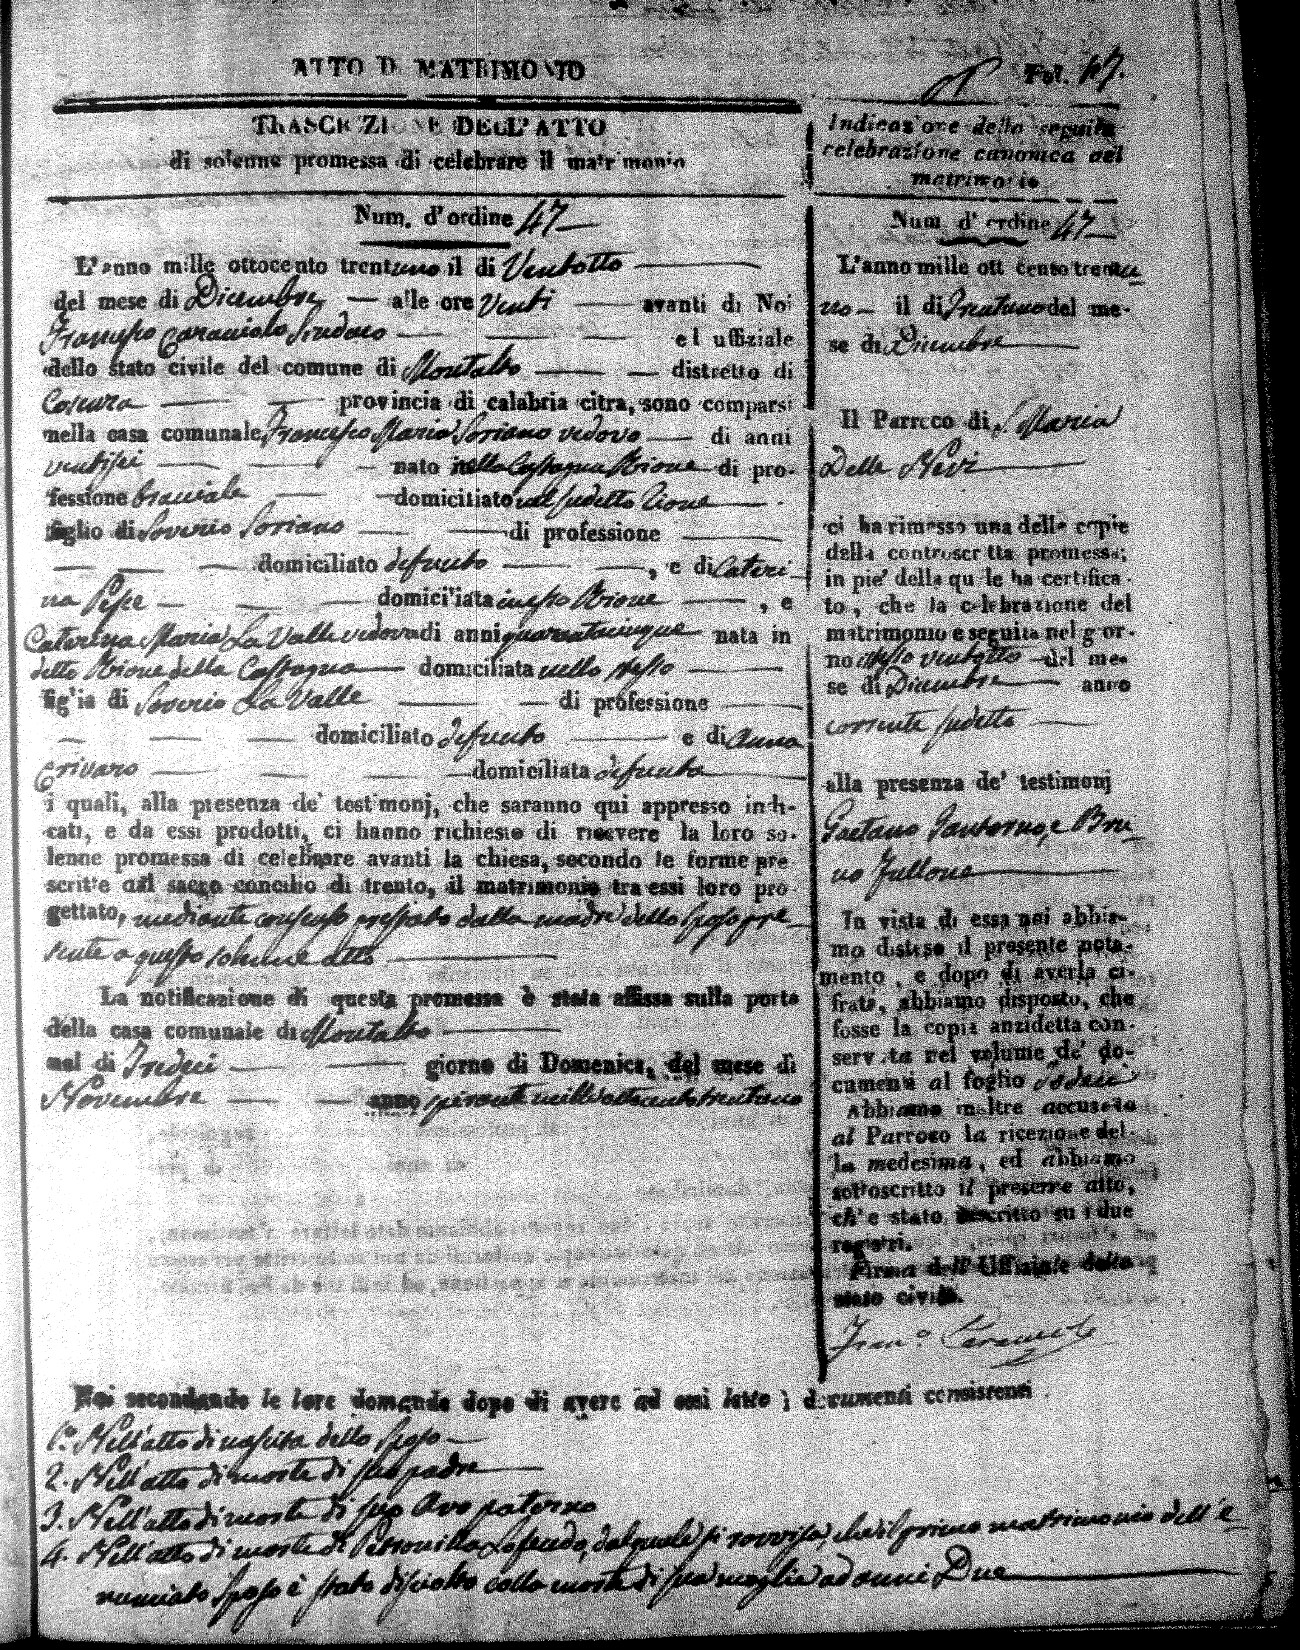 ATTO DI MATRIMONIO
Fol. 47.
TRASCRIZIONE DELL'ATTO
di solenne promessa di celebrare il matrimonio
Num. d'ordine 47
L'anno mille ottocento trentuno il di Ventotto
del mese di Dicembre alle ore venti avanti di Noi
Francesco Caracciolo Sindaco ed uffiziale
dello stato civile del comune di Montalto distretto di
Cosenza provincia di calabria citra, sono comparsi
nella casa comunale, Francesco Maria Soriano vedovo di anni
ventisei nato nella Castagna Rione di pro-
fessione bracciale domiciliato nel sudetto Rione
figlio di Saverio Soriano di professione
domiciliato defunto , e di Cateri-
na Pepe domiciliata in esso Rione , e
Catarina Maria La Valle vedova di anni quarantacinque nata in
detto Rione della Castagna domiciliata nello stesso
figlia di Saverio La Valle di professione
domiciliato defunto e di Anna
Crivaro domiciliata defunta
i quali, alla presenza de' testimonj, che saranno qui appresso indi-
cati, e da essi prodotti, ci hanno richiesto di ricevere la loro so-
lenne promessa di celebrare avanti la chiesa, secondo le forme pre
scritte dal sacro concilio di trento, il matrimonio tra essi loro pro
gettato, mediante consenso prestato dalla madre dello Sposo pre-
sente a questo solenne atto
La notificazione di questa promessa è stata affissa sulla porta
della casa comunale di Montalto
nel di Tredeci giorno di Domenica, del mese di
Novembre anno spirante mille ottocento trentuno
Indicazione della seguita
celebrazione canonica del
matrimonio
Num d'ordine 47
L'anno mille ottocento trentu-
no il di Trentuno del me-
se di Dicembre
Il Parroco di S. Maria
Delle Nevi
ci ha rimesso una delle copie
della controscritta promessa;
in piè della quale ha certifica-
to, che la celebrazione del
matrimonio è seguita nel gior-
no istesso ventotto del me-
se di Dicembre anno
corrente sudetto
alla presenza de' testimonj
Gaetano Santoruojo, e Bru-
no Fullone
In vista di essa noi abbia-
mo disteso il presente nota-
mento, e dopo di averla ci-
frata, abbiamo disposto, che
fosse la copia anzidetta con-
servata nel volume de' do-
cumenti al foglio
Abbiamo inoltre accusato
al Parroco la ricezione del-
la medesima, ed abbiamo
sottoscritto il presente atto,
ch'è stato inscritto su i due
registri.
Firma dell'Uffiziale dello
stato civile.
Fran.º Caracciolo
Noi secondando le loro domande dopo di avere ad essi letto i documenti consistenti
1.º Nell'atto di nascita dello Sposo
2. Nell'atto di morte di suo padre
3. Nell'atto di morte di suo Avo paterno
4. Nell'atto di morte di Petronilla Lofeudo, dal quale si rovvisa, che il primo matrimonio dell'e-
nunciato Sposo è stato disciolto colla morte di sua moglie ad anni Due